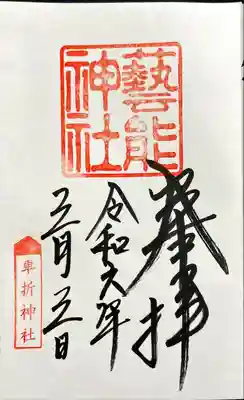 藝能
神社
奉拝
令和六年
三月三日
車折神社